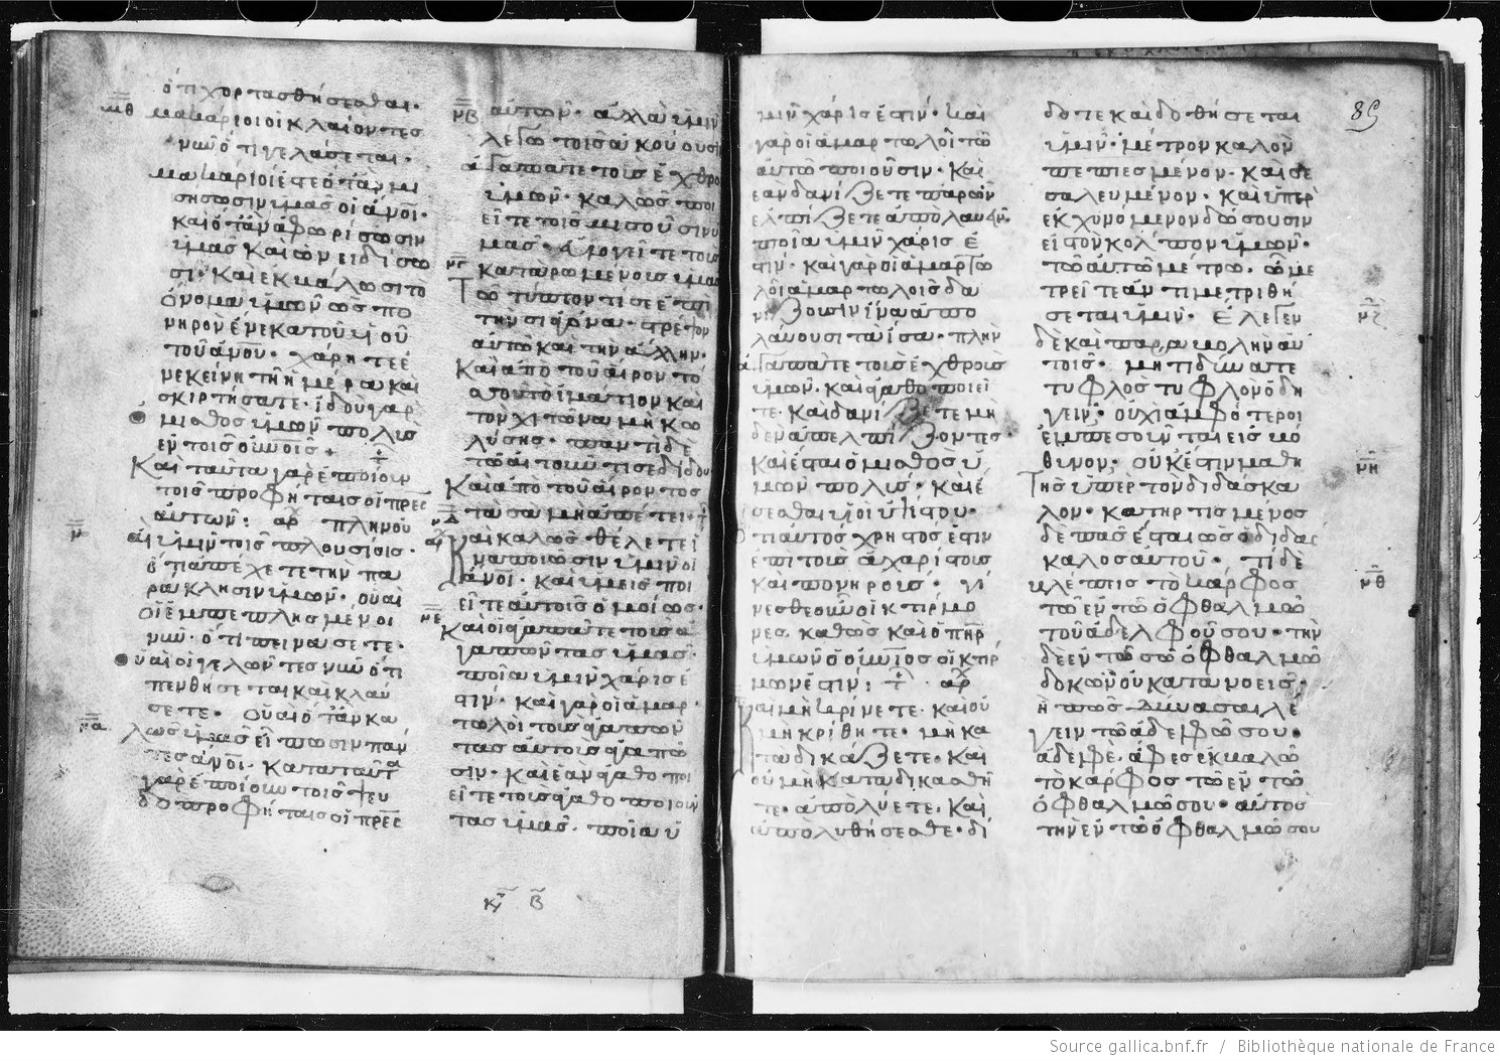 ὅτι χορτασθήσεσθαι·
μθ μακάριοι οἱ κλαίοντες
νῦν ὅτι γελάσεται·
μακάριοι ἐστε ὅτὰν μι
σήσωσιν ὑμᾶς οἱ ἀνοῖ·
καὶ ὅτὰν ἀφωρίσωσιν
ὑμᾶς καὶ ὡνειδίσω
σι· καὶ ἐκμάλωσι το
ὄνομα ὑμῶν ὡς πο
νηρὸν ἕνεκα τοῦ υἱοῦ
τοῦ ἀνοῦ· χάρητε ἐ
νεκείνη τῆ ἡμέρα καὶ
σκιρτήσατε· ἰδοὺ γὰρ
μισθὸς ὑμῶν πολὺς
ἐν τοῖς οὐνοῖς
Κατὰ ταῦτα γὰρ ἐποίουν
τοῖς προφήταις οἱ πρες
αὐτῶν: ἀρ πλὴν οὐ
ν αὶ ὑμῖν τοῖς πλουσίοις·
ὅτι ἀπέχετε τὴν πα
ράκλησιν ὑμῶν· οὐαὶ
οἱ ἐμπεπλησμένοι
νῦν· ὅτι πεινάσετε·
οὐαὶ οἱ γελῶντες νῦν ὅτι
πενθήσεται καὶ κλαύ
σετε· οὐαὶ ὅτὰν κα
να λῶς ὑμᾶς εἴπωσιν πάν
τες ἀνοι· κατὰ ταῦτα
γὰρ ἐποίουν τοῖς ψευ
δοπροφήταις οἱ πρες
νβ αὐτῶν· ἀλλὰ ὑμῖν
λέγω τοῖς ἀκούουσι
ἀγαπᾶτε τοὺς ἐχθρο
ὑμῶν· καλῶς ποι
εῖτε τοῖς μισοῦσιν ὑ
μᾶς· εὐλογεῖτε τοὺς
νγ καταρωμένους ὑμᾶς
Τῶ τύπτοντί σε ἐπὶ
τὴν σιαγόνα· στρέψον
αὐτῶ καὶ τὴν ἄλλην·
Καὶ ἀπὸ τοῦ αἴρον τό
σου τὸ ἱμάτιον καὶ
τὸν χιτῶνα μὴ κω
λύσης· παντὶ δὲ
τῶ αἰτοῦντί σε δίδου
Καὶ ἀπὸ τοῦ αἴροντος
τὰ σὰ μὴ ἀπέτει·
νδ καὶ καλῶς θέλετε ἵ
να ποιῶσιν ὑμῖν οἱ
ἀνοι· καὶ ὑμεῖς ποι
εῖτε αὐτοῖς ὁμοίως·
νε Καὶ οἱ ἀγαπᾶτε τοὺς ἀ
γαπῶντας ὑμᾶς·
ποία ὑμῖν χάρις ἐ
στίν· καὶ γὰρ οἱ ἁμαρ
τωλοὶ τοὺς ἀγαπῶν
τας αὐτοὺς ἀγαπῶ
σιν· καὶ ἐὰν ἀγαθοποι
εῖτε τοὺς ἀγαθοποιοῦν
τας ὑμᾶς· ποία ὑ
κγ β
89
μῖν χάρις ἐστίν· καὶ
γὰρ οἱ ἁμαρτωλοὶ τῶ
αὐτῶ ποιοῦσιν· καὶ
ἐὰν δανίζετε παρῶν
ἐλπίζετε ἀπολαυεῖν·
ποία ὑμῖν χάρις ἐ
στίν· καὶ γὰρ οἱ ἁμαρτω
λοὶ ἁμαρτωλοῖς δα
νίζουσιν ἵνα ἀπο
λάυουσι τὰ ἴσα· πλὴν
ἀγαπᾶτε τοὺς ἐχθροὺς
ὑμῶν· καὶ ἀγαθοποιεῖ
τε· καὶ δανίζετε μη
δὲν ἀπελπίζοντες·
καὶ ἔσται ὁ μισθὸς ὑ
μῶν πολύς· καὶ ἔ
σεσθαι υἱοὶ ὑψίστου·
ὅτι αὐτὸς χρηστός ἐστιν
ἐπὶ τοὺς ἀχαρίστους
καὶ πονηρούς· γί
νεσθε οὖν οἰκτίρμο
νες· καθὼς καὶ ὁ πηρ
ὑμῶν ὁ οὐνιος οἰκτίρ
μων ἐστίν: ἀρ
Καὶ μὴ κρίνετε· καὶ οὐ
μὴ κριθῆτε· μὴ κα
ταδικάζετε· καὶ
οὐ μὴ καταδικασθῆ
τε· ἀπολύετε· καὶ
ἀπολυθήσεσθε· δί
δοτε καὶ δοθήσεται
ὑμῖν· μέτρον καλὸν
πεπιεσμένον· καὶ σε
σαλευμένον· καὶ ὑπερ
εκχυνόμενον δώσουσιν
εἰς τὸν κόλπον ὑμῶν·
τῶ αὐτῶ μέτρω· ὧ με
τρεῖτε ἀντιμετριθή
σεται ὑμῖν· ἔλεγεν
νζ δὲ καὶ παραβολὴν αὐ
τοῖς· μήτι δύναται
τυφλὸς τυφλὸν ὁδη
γεῖν· οὐχὶ ἀμφότεροι
ἐμπεσοῦνται εἰς βό
νη θυνον· οὐκ ἔστιν μαθη
τὴς ὑπὲρ τὸν διδάσκα
λον· κατηρτισμένος
δὲ πᾶς ἔσται ὡς ὁ διδάς
καλος αὐτοῦ· τί δὲ
νθ βλέπεις τὸ κάρφος
τῶ ἐν τῶ ὀφθαλμῶ
τοῦ ἀδελφοῦ σου· τὴν
δὲ ἐν τῶ σῶ ὀφθαλμῶ
δοκὸν οὐ κατανοεῖς·
ἢ πῶς δύνασαι λέ
γειν τῶ ἀδελφῶ σου·
ἀδελφέ· ἄφες ἐκμαλῶ
τὸ κάρφος τῶ ἐν τῶ
ὀφθαλμῶ σου· αὐτὸς
τὴν ἐν τῶ ὀφθαλμῶ σου
Source gallica.bnf.fr / Bibliothèque nationale de France